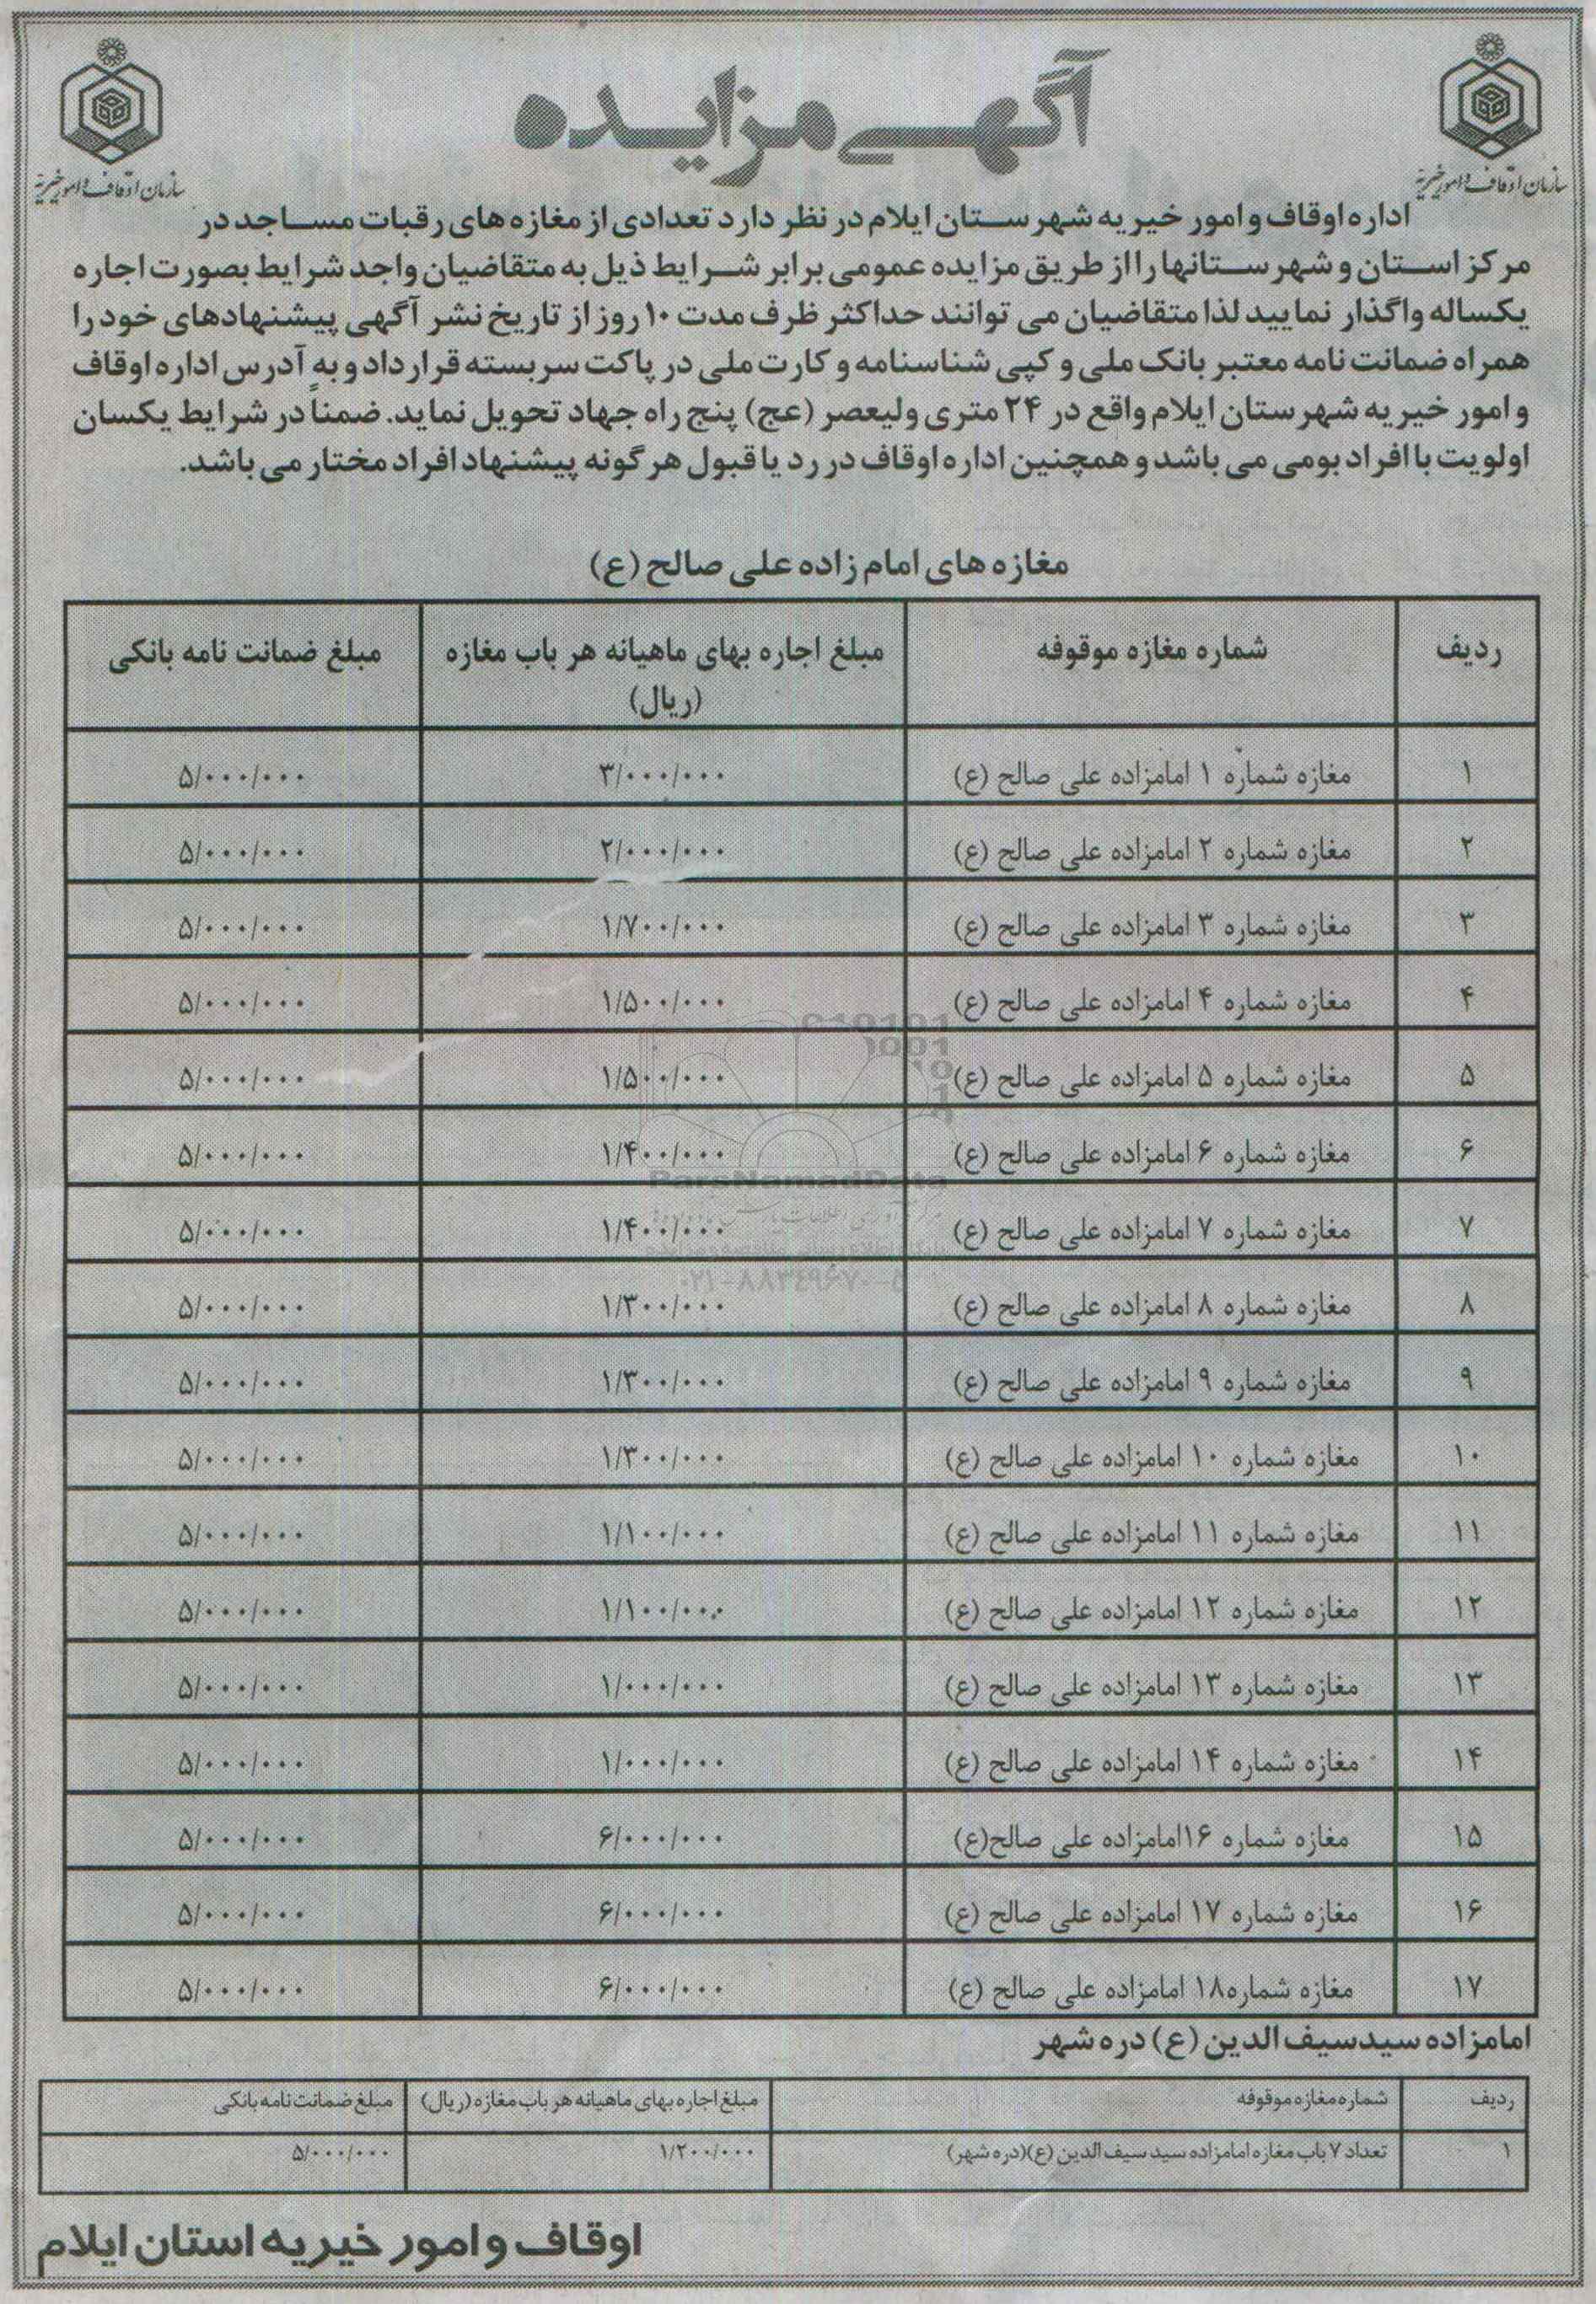 آگهی مزایده
سازمان اوقاف و امور خیریه
سازمان اوقاف و امور خیریه
اداره اوقاف و امور خیریه شهرستان ایلام در نظر دارد تعدادی از مغازه های رقبات مساجد در
مرکز استان و شهرستانها را از طریق مزایده عمومی برابر شرایط ذیل به متقاضیان واجد شرایط بصورت اجاره
یکساله واگذار نمایید لذا متقاضیان می توانند حداکثر ظرف مدت ۱۰ روز از تاریخ نشر آگهی پیشنهادهای خود را
همراه ضمانت نامه معتبر بانک ملی و کپی شناسنامه و کارت ملی در پاکت سربسته قرار داد و به آدرس اداره اوقاف
و امور خیریه شهرستان ایلام واقع در ۲۴ متری ولیعصر (عج) پنج راه جهاد تحویل نماید. ضمناً در شرایط یکسان
اولویت با افراد بومی می باشد و همچنین اداره اوقاف در رد یا قبول هر گونه پیشنهاد افراد مختار می باشد.
مغازه های امام زاده علی صالح (ع)
ردیف شماره مغازه موقوفه مبلغ اجاره بهای ماهیانه هر باب مغازه مبلغ ضمانت نامه بانکی
(ریال)
۱ مغازه شماره ۱ امامزاده علی صالح (ع) ۳/۰۰۰/۰۰۰ ۵/۰۰۰/۰۰۰
۲ مغازه شماره ۲ امامزاده علی صالح (ع) ۲/۰۰۰/۰۰۰ ۵/۰۰۰/۰۰۰
۳ مغازه شماره ۳ امامزاده علی صالح (ع) ۱/۷۰۰/۰۰۰ ۵/۰۰۰/۰۰۰
۴ مغازه شماره ۴ امامزاده علی صالح (ع) ۱/۵۰۰/۰۰۰ ۵/۰۰۰/۰۰۰
۵ مغازه شماره ۵ امامزاده علی صالح (ع) ۱/۵۰۰/۰۰۰ ۵/۰۰۰/۰۰۰
۶ مغازه شماره ۶ امامزاده علی صالح (ع) ۱/۴۰۰/۰۰۰ ۵/۰۰۰/۰۰۰
ParsNamadData
۷ مغازه شماره ۷ امامزاده علی صالح (ع) ۱/۴۰۰/۰۰۰ ۵/۰۰۰/۰۰۰
۰۲۱-۸۸۳۴۹۶۷۰-۵
۸ مغازه شماره ۸ امامزاده علی صالح (ع) ۱/۳۰۰/۰۰۰ ۵/۰۰۰/۰۰۰
۹ مغازه شماره ۹ امامزاده علی صالح (ع) ۱/۳۰۰/۰۰۰ ۵/۰۰۰/۰۰۰
۱۰ مغازه شماره ۱۰ امامزاده علی صالح (ع) ۱/۳۰۰/۰۰۰ ۵/۰۰۰/۰۰۰
۱۱ مغازه شماره ۱۱ امامزاده علی صالح (ع) ۱/۱۰۰/۰۰۰ ۵/۰۰۰/۰۰۰
۱۲ مغازه شماره ۱۲ امامزاده علی صالح (ع) ۱/۱۰۰/۰۰۰ ۵/۰۰۰/۰۰۰
۱۳ مغازه شماره ۱۳ امامزاده علی صالح (ع) ۱/۰۰۰/۰۰۰ ۵/۰۰۰/۰۰۰
۱۴ مغازه شماره ۱۴ امامزاده علی صالح (ع) ۱/۰۰۰/۰۰۰ ۵/۰۰۰/۰۰۰
۱۵ مغازه شماره ۱۶امامزاده علی صالح(ع) ۶/۰۰۰/۰۰۰ ۵/۰۰۰/۰۰۰
۱۶ مغازه شماره ۱۷ امامزاده علی صالح (ع) ۶/۰۰۰/۰۰۰ ۵/۰۰۰/۰۰۰
۱۷ مغازه شماره۱۸ امامزاده علی صالح (ع) ۶/۰۰۰/۰۰۰ ۵/۰۰۰/۰۰۰
امامزاده سید سیف الدین (ع) دره شهر
ردیف شماره مغازه موقوفه مبلغ اجاره بهای ماهیانه هر باب مغازه (ریال) مبلغ ضمانت نامه بانکی
۱ تعداد ۷ باب مغازه امامزاده سید سیف الدین (ع)(دره شهر) ۱/۲۰۰/۰۰۰ ۵/۰۰۰/۰۰۰
اوقاف و امور خیریه استان ایلام